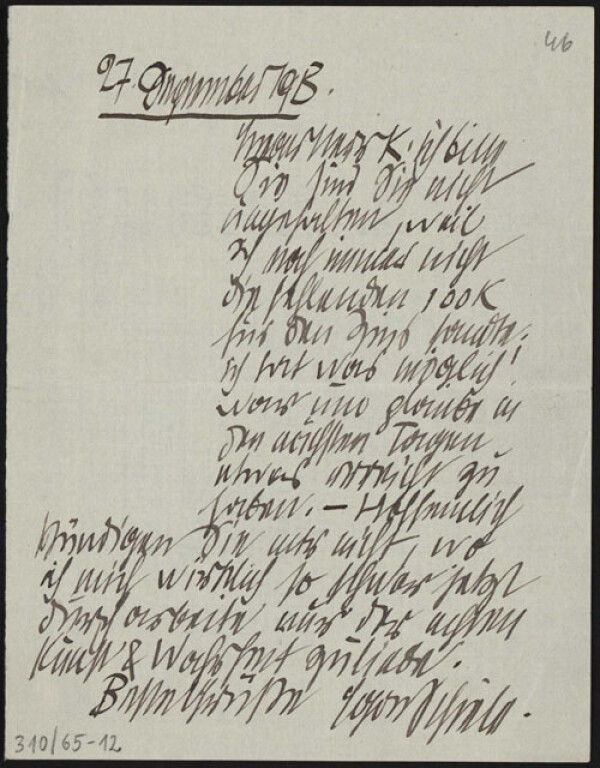 46
27. Dezember 1913.
Lieber Herr K. ich bitte
Sie sind Sie nicht
ungehalten, weil
ich noch immer nicht
die fehlenden 100 K
für den Zins sandte.
ich tat was möglich!
war und glaube in
den nächsten Tagen
etwas erreicht zu
haben. – Hoffentlich
kündigen Sie mir nicht, wo
ich mich wirklich so schwer jetzt
durch arbeite nur der echten
Kunst & Wahrheit zuliebe.
Beste Grüße Egon Schiele.
310/65-12